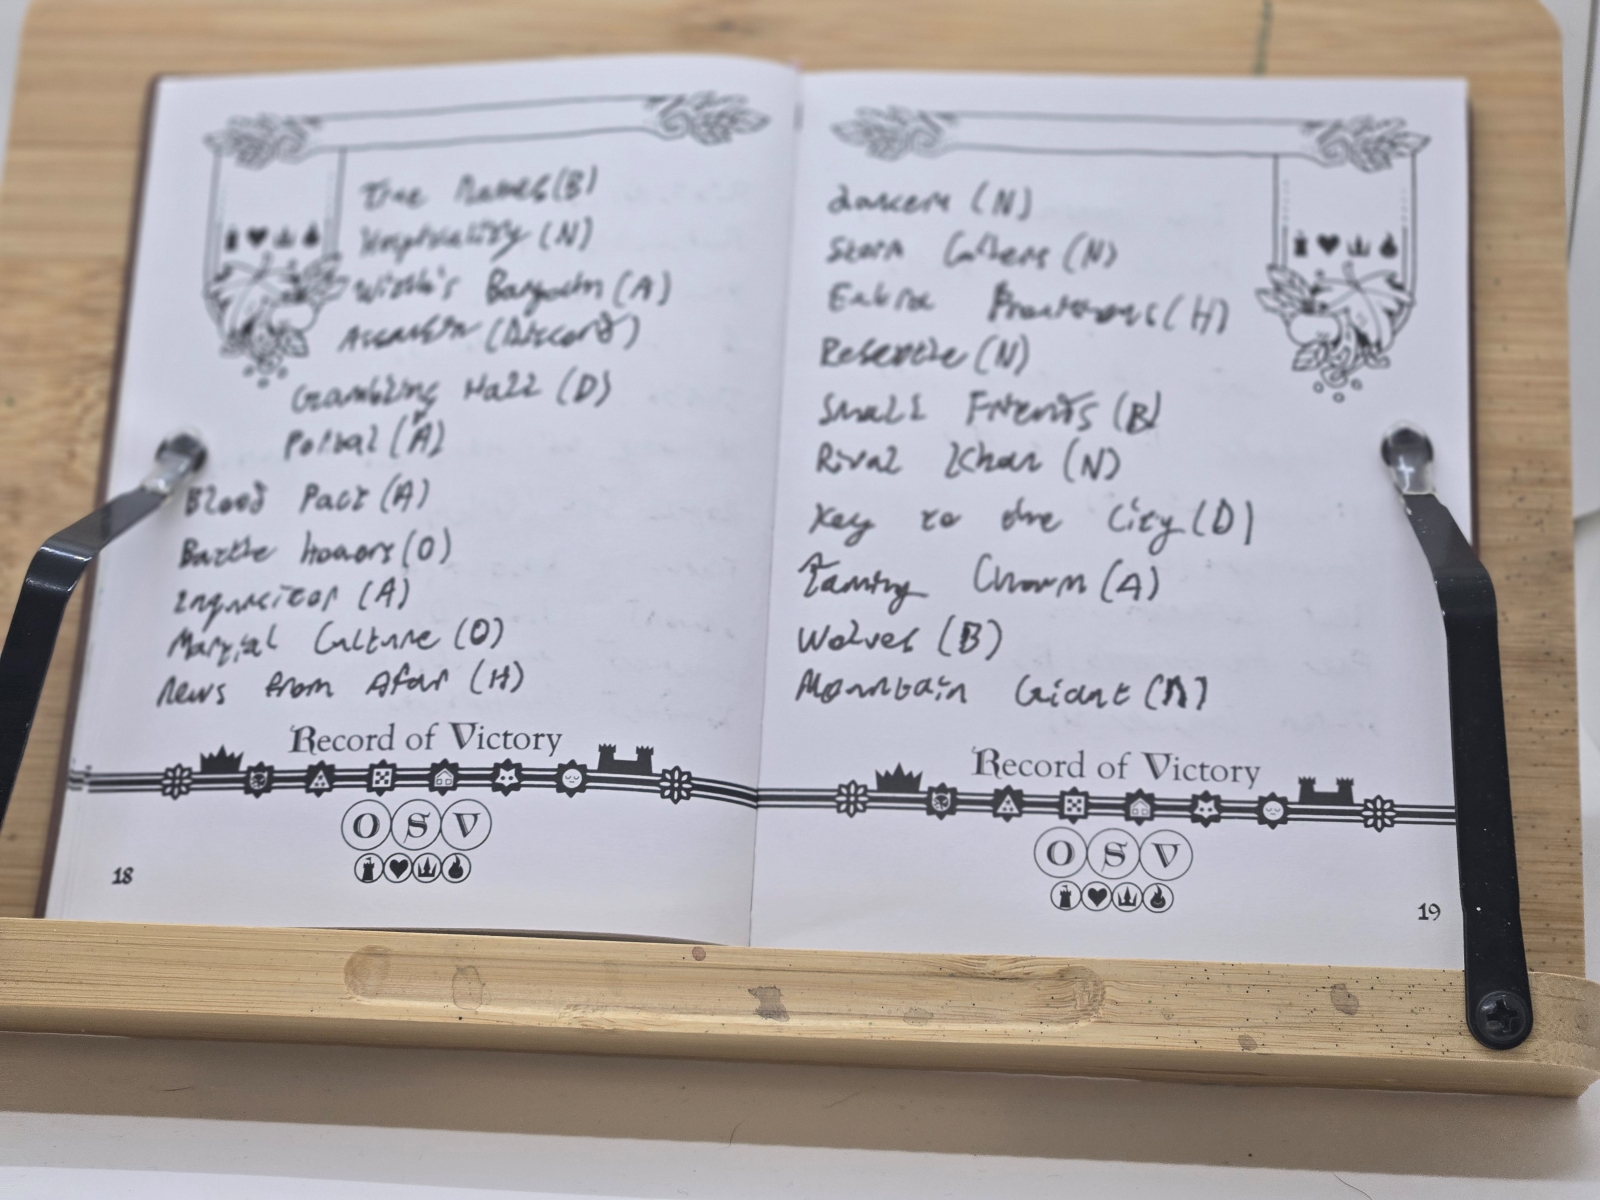 True Names (B)
Hospitality (N)
Witch's Bargain (A)
Assassin (Discord)
Gambling Hall (D)
(A)
Blood Pact (A)
Battle honors (O)
Inquisitor (A)
Martial Culture (O)
News from Afar (H)
Record of Victory
O S V
18
Dancers (N)
Storm (N)
(H)
(N)
Small Friends (B)
Rival Khan (N)
Key to the City (D)
Taming Charm (A)
Wolves (B)
Mountain Giant
Record of Victory
O S V
19